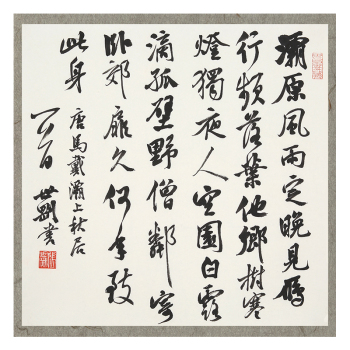 灞原風雨定晚見鴈
行頻落葉他鄉樹寒
燈獨夜人空園白露
滴孤壁野僧鄰寄
卧郊扉久何年致
此身
唐馬戴灞上秋居
世書